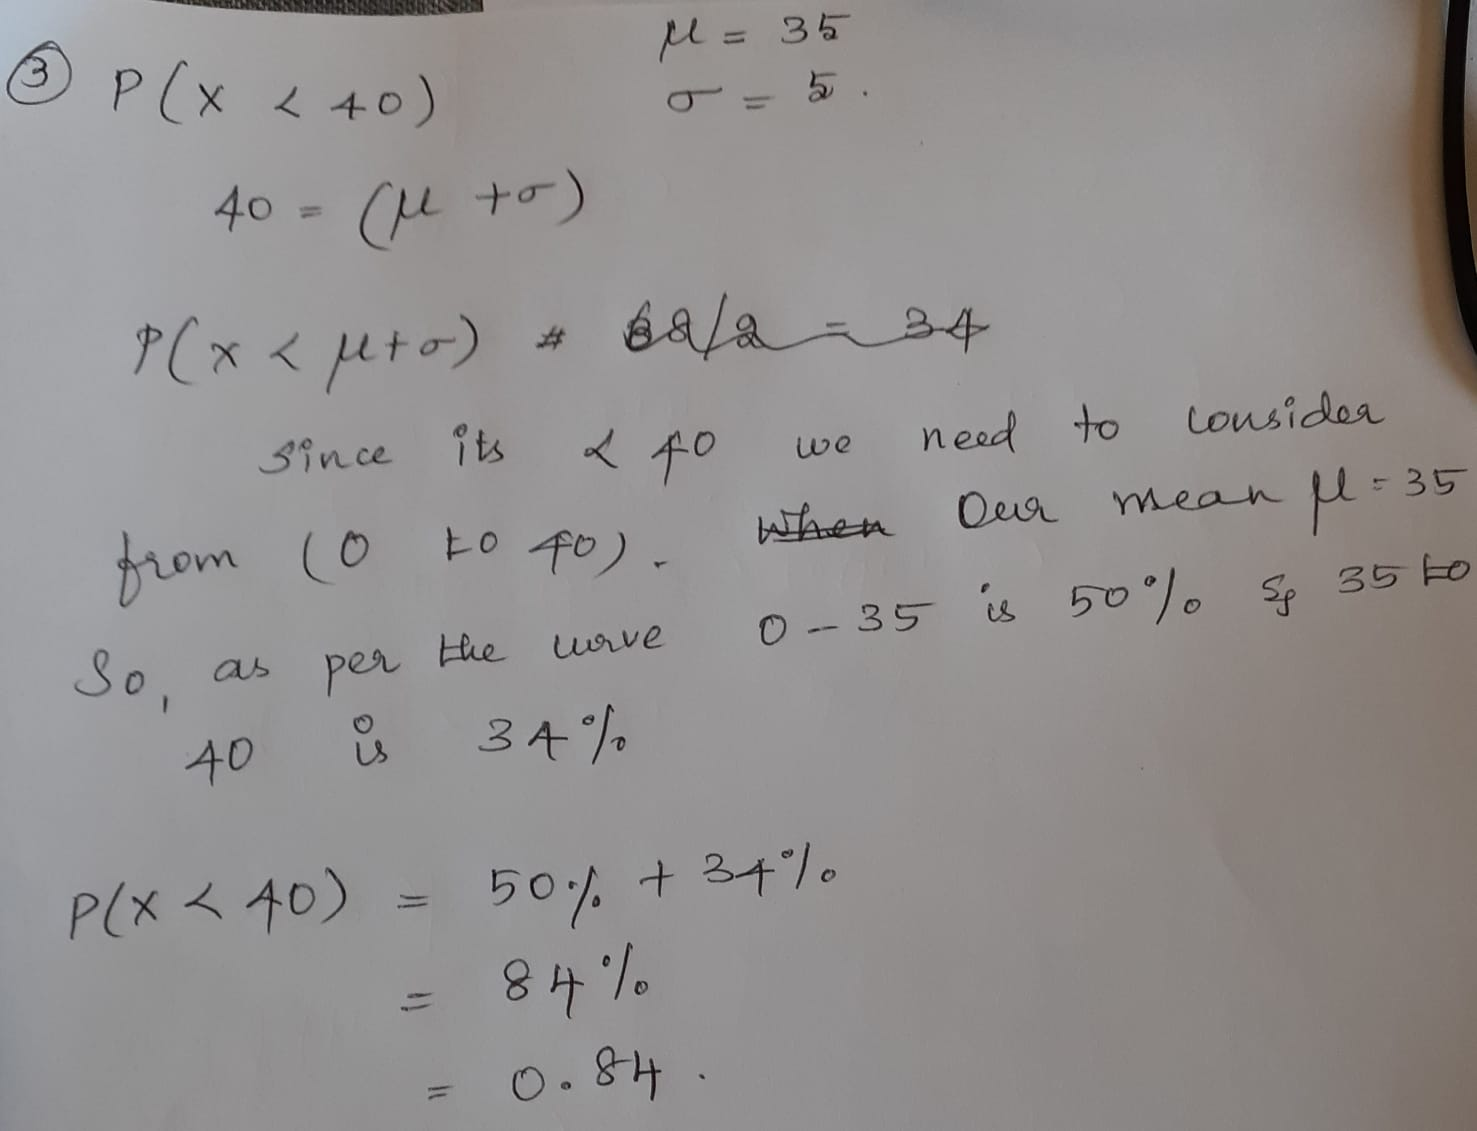 ③ P(X < 40)
μ = 35
σ = 5.
40 = (μ + σ)
P(x < μ+σ) = 68/2 = 34
since its < 40 we need to consider
from (0 to 40). When Our mean μ = 35
So, as per the curve 0 - 35 is 50% & 35 to
40 is 34%
P(X < 40) = 50% + 34%
= 84%
= 0.84.